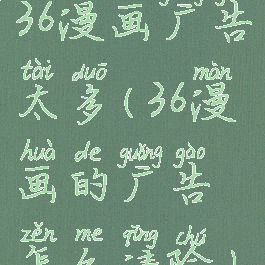 36漫画广告
tài duō màn
太多(36漫
huà de guǎng gào
画的广告
zěn me qīng chú
怎么清除)